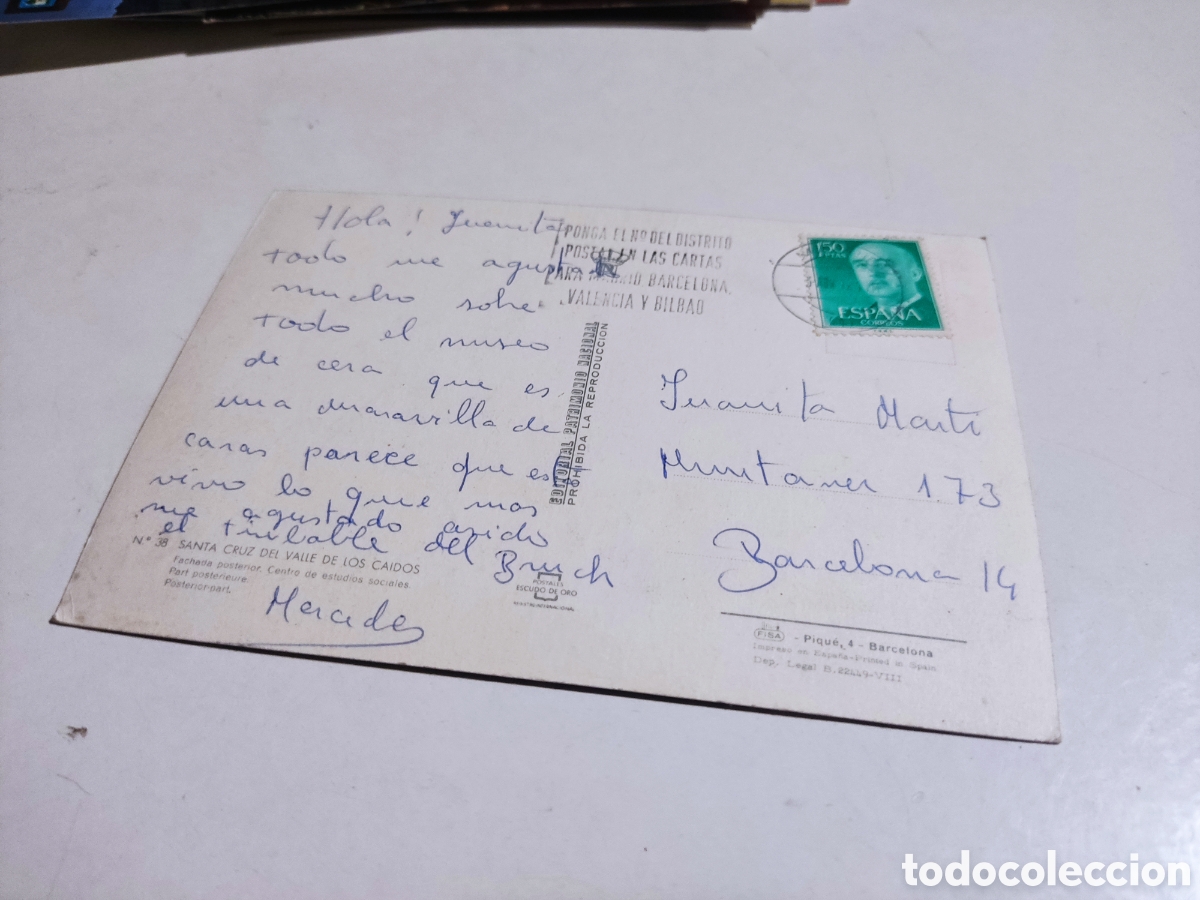 Hola! Juanita
todo me agusta
mucho sobre
todo el museo
de cera que es
una maravilla de
caras parece que es
vivo lo que mas
me agustado
el timbable del Bruch
Mercedes
Nº 38 SANTA CRUZ DEL VALLE DE LOS CAIDOS
Fachada posterior. Centro de estudios sociales.
Part posterieure.
Posterior part.
EDITORIAL PATRIMONIO NACIONAL
PROHIBIDA LA REPRODUCCION
POSTALES
ESCUDO DE ORO
PONGA EL Nº DEL DISTRITO
POSTAL EN LAS CARTAS
PARA MADRID BARCELONA,
VALENCIA Y BILBAO
150
PTAS
ESPAÑA
CORREOS
Juanita Marti
Muntaner 173
Barcelona 14
FISA - Piqué, 4 - Barcelona
Impreso en España-Printed in Spain
Dep. Legal B. 22449-VIII
todocoleccion